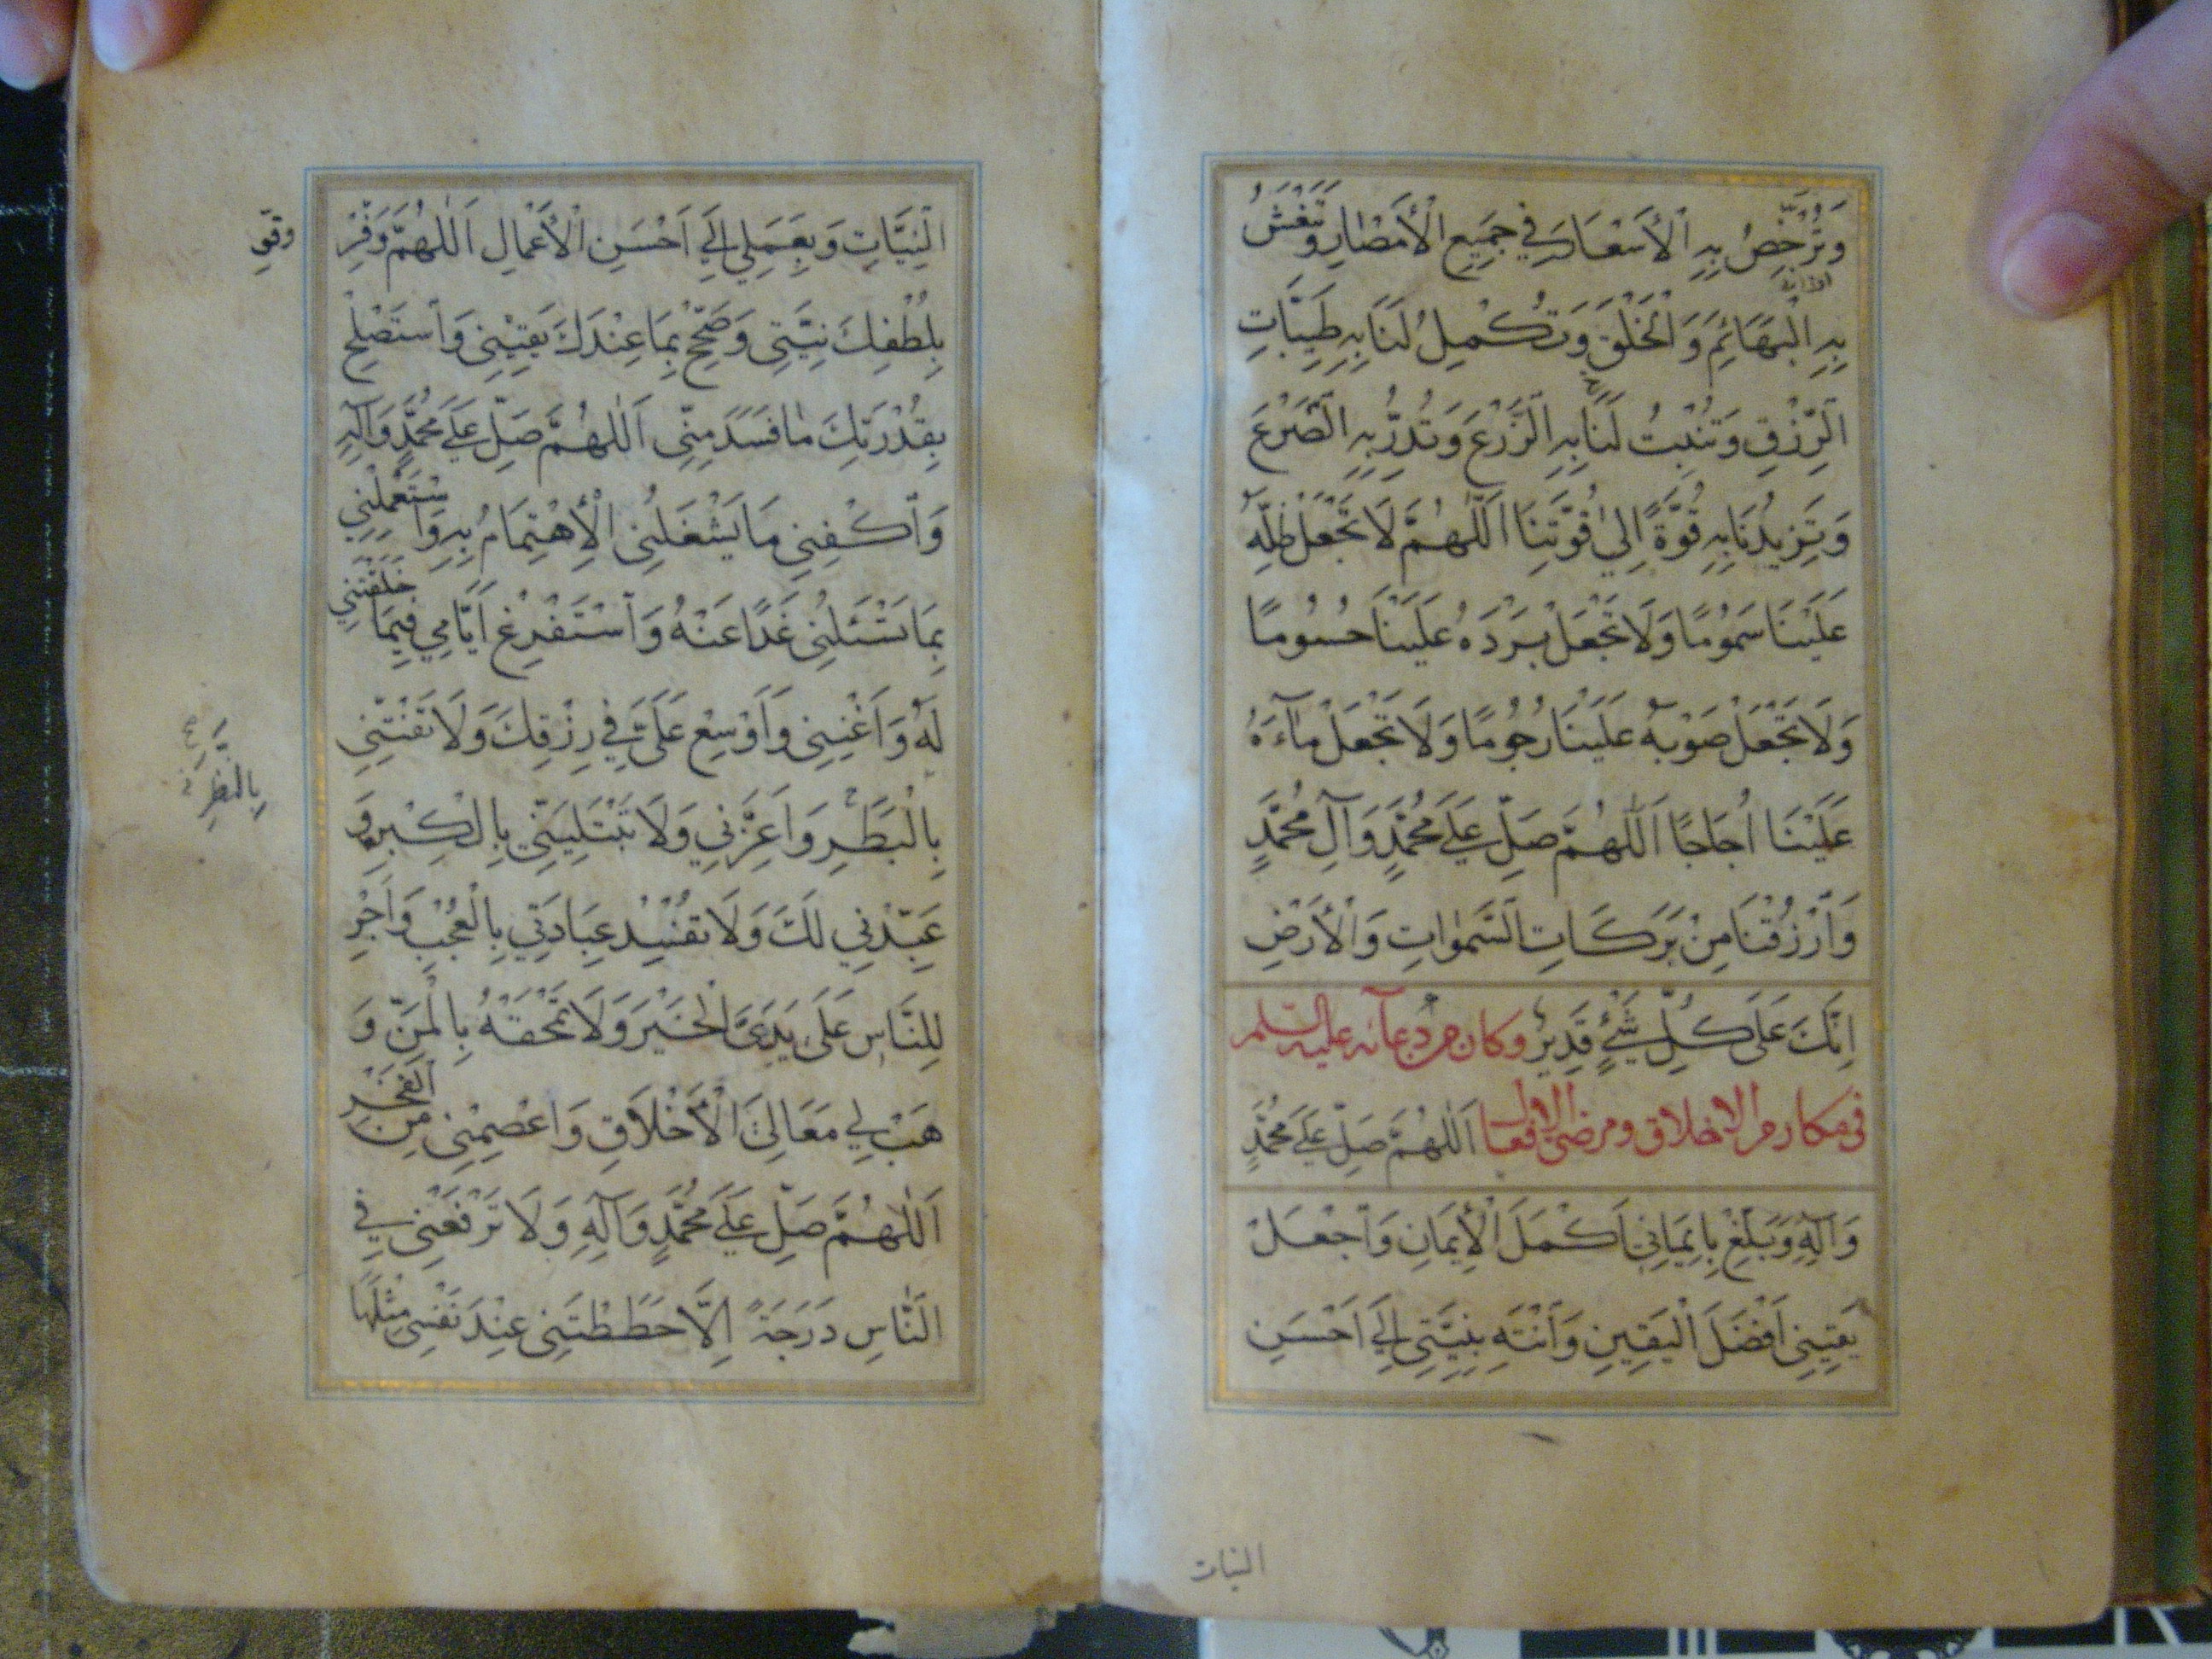 وَتُرَخِّصُ بِهِ الْأَسْعَارَ فِي جَمِيعِ الْأَمْصَارِ وَتَنْعَشُ
بِهِ الْبَهَائِمَ وَالْخَلْقَ وَتُكْمِلُ لَنَا بِهِ طَيِّبَاتِ
الرِّزْقِ وَتُنْبِتُ لَنَا بِهِ الزَّرْعَ وَتُدِرُّ بِهِ الضَّرْعَ
وَتَزِيدُنَا بِهِ قُوَّةً اِلٰى قُوَّتِنَا اَللّٰهُمَّ لَا تَجْعَلْ ظِلَّهُ
عَلَيْنَا سَمُومًا وَلَا تَجْعَلْ بَرْدَهُ عَلَيْنَا حُسُومًا
وَلَا تَجْعَلْ صَوْبَهُ عَلَيْنَا رُجُومًا وَلَا تَجْعَلْ مَاۤءَهُ
عَلَيْنَا اُجَاجًا اَللّٰهُمَّ صَلِّ عَلٰى مُحَمَّدٍ وَآلِ مُحَمَّدٍ
وَارْزُقْنَا مِنْ بَرَكَاتِ السَّمٰوَاتِ وَالْأَرْضِ
اِنَّكَ عَلَى كُلِّ شَيْءٍ قَدِيرٌ وكان من دعائه عليه السلم
فى مكارم الاخلاق ومرضى الافعال اَللّٰهُمَّ صَلِّ عَلٰى مُحَمَّدٍ
وَآلِهِ وَبَلِّغْ بِاِيمَانِي اَكْمَلَ الْاِيمَانِ وَاجْعَلْ
يَقِينِي اَفْضَلَ الْيَقِينِ وَانْتَهِ بِنِيَّتِي اِلٰى اَحْسَنِ
النيات
النِّيَّاتِ وَبِعَمَلِي اِلٰى اَحْسَنِ الْأَعْمَالِ اَللّٰهُمَّ وَفِّرْ
بِلُطْفِكَ نِيَّتِي وَصَحِّحْ بِمَا عِنْدَكَ يَقِينِي وَاسْتَصْلِحْ
بِقُدْرَتِكَ مَا فَسَدَ مِنِّي اَللّٰهُمَّ صَلِّ عَلٰى مُحَمَّدٍ وَآلِهِ
وَاكْفِنِي مَا يَشْغَلُنِي الْاِهْتِمَامُ بِهِ وَاسْتَعْمِلْنِي
بِمَا تَسْئَلُنِي غَدًا عَنْهُ وَاسْتَفْرِغْ اَيَّامِي فِيمَا خَلَقْتَنِي
لَهُ وَاَغْنِنِي وَاَوْسِعْ عَلَيَّ فِي رِزْقِكَ وَلَا تَفْتِنِّي
بِالْبَطَرِ وَاَعِزَّنِي وَلَا تَبْتَلِيَنِّي بِالْكِبْرِ وَ
بالنظر
عَبِّدْنِي لَكَ وَلَا تُفْسِدْ عِبَادَتِي بِالْعُجْبِ وَاَجْرِ
لِلنَّاسِ عَلَى يَدَيَّ الْخَيْرَ وَلَا تَمْحَقْهُ بِالْمَنِّ وَ
هَبْ لِي مَعَالِيَ الْأَخْلَاقِ وَاعْصِمْنِي مِنَ الْفَخْرِ
اَللّٰهُمَّ صَلِّ عَلٰى مُحَمَّدٍ وَآلِهِ وَلَا تَرْفَعْنِي فِي
النَّاسِ دَرَجَةً اِلَّا حَطَطْتَنِي عِنْدَ نَفْسِي مِثْلَهَا